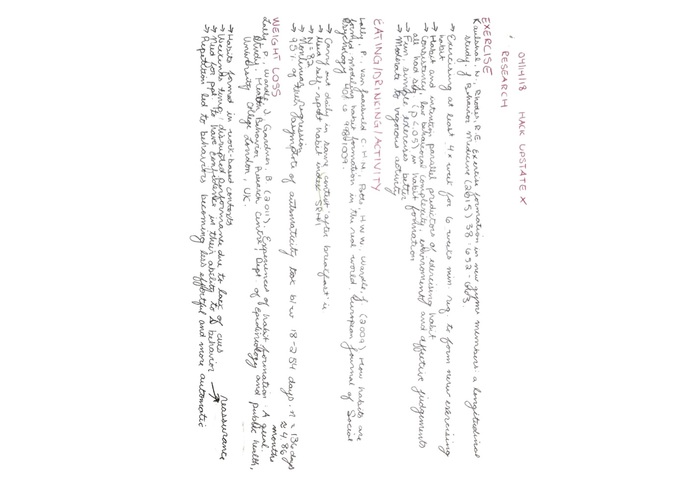 04/11/18 HACK UPSTATE X
RESEARCH
EXERCISE
Kaushal N., Rhodes R.E. Exercise formation in new gym members a longitudinal
study. J Behavior Medicine (2015) 38: 652-663.
→ Exercising at least 4x week for 6 weeks min. req to form new exercising
habit
→ Habit and intention parallel predictors of exercising habit
→ Consistency, low behavioral complexity, environment and affective judgements
all had (p<.05) in habit formation
→ Fun simple exercises better
→ Moderate to vigorous activity
EATING/DRINKING/ACTIVITY
Lally, P., van Jaarsveld C.H.M., Potts, H.W.W., Wardle, J. (2009) How habits are
formed: Modeling habit formation in the real world. European Journal of Social
Psychology 40, 998-1009.
→ Carry out daily in same context 'after breakfast'
→ Used self-report habit index SRHI
→ N=82
→ Nonlinear regression
→ 95% of asymptote of automaticity took b/w 18-254 days.
months
WEIGHT LOSS
Lally P., Wardle, J., Gardner, B. (2011). Experiences of habit formation: A qual.
study. Health Behavior Research Centre, Dept of Epidemiology and public health,
University College London, UK.
→ Habits formed in work-based contexts
→ Weekends temp. disrupted performance due to lack of cues
→ Need for ppl to have confidence in their ability to Δ behavior → Reassurance
→ Repetition led to behaviors becoming less effortful and more automatic